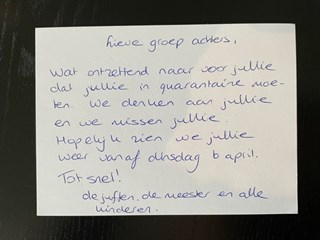 Lieve groep achters,
Wat ontzettend naar voor jullie
dat jullie in quarantaine moe-
ten. We denken aan jullie
en we missen jullie.
Hopelijk zien we jullie
weer vanaf dinsdag 6 april.
Tot snel!
de juffen, de meester en alle
kinderen.